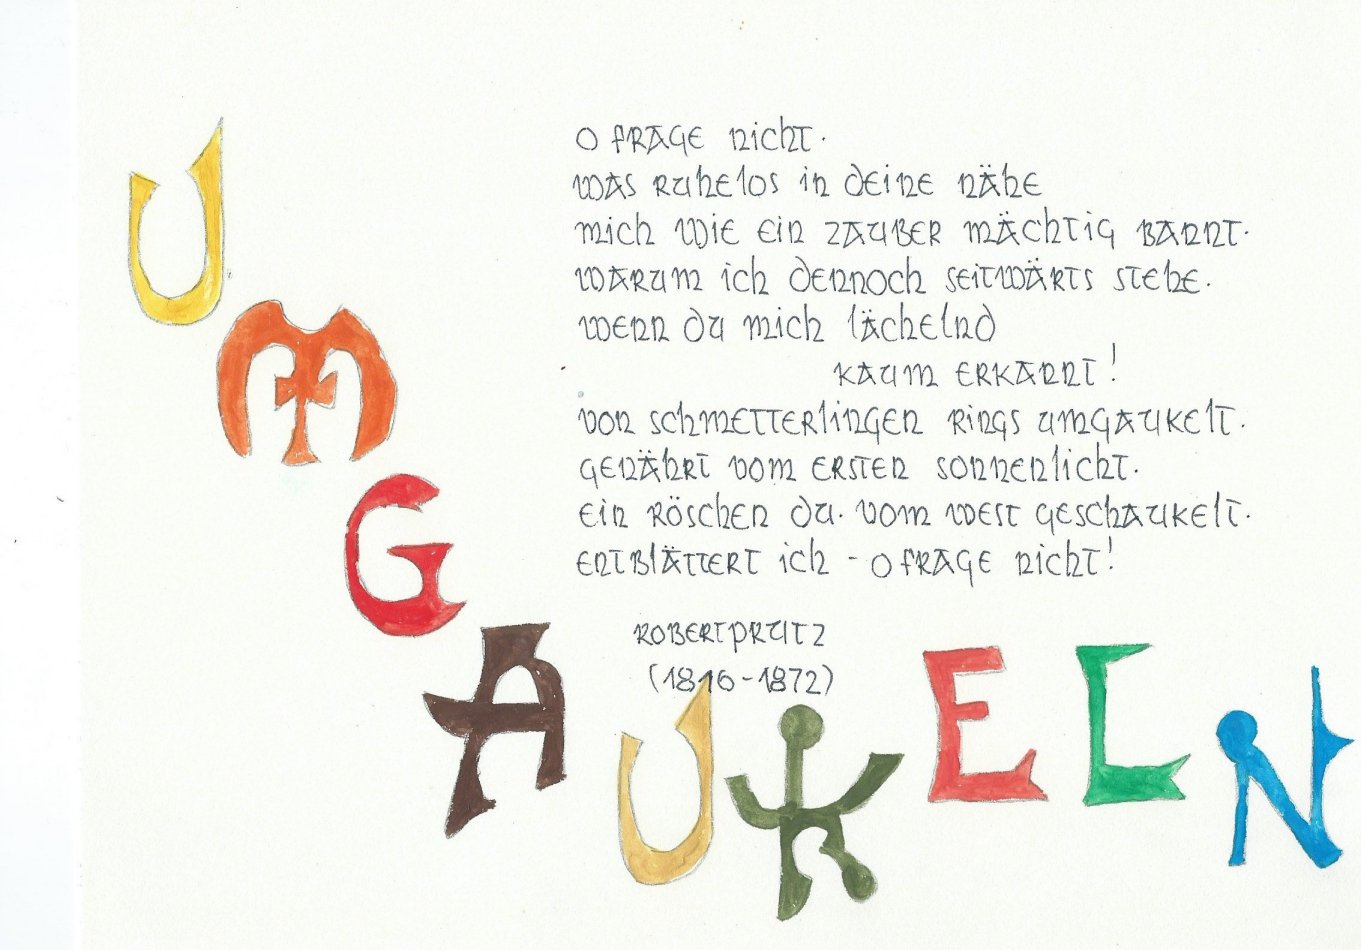 O FRAGE NICHT.
WAS RUHELOS IN DEINE NÄHE
MICH WIE EIN ZAUBER MÄCHTIG BANNT.
WARUM ICH DENNOCH SEITWÄRTS STEHE.
WENN DU MICH LÄCHELND
KAUM ERKANNT!
VON SCHMETTERLINGEN RINGS UMGAUKELT.
GENÄHRT VOM ERSTEN SONNENLICHT.
EIN RÖSCHEN DU. VOM WEST GESCHAUKELT.
ENTBLÄTTERT ICH - O FRAGE NICHT!
ROBERT PRUTZ
(1816-1872)
UMGAUKELN